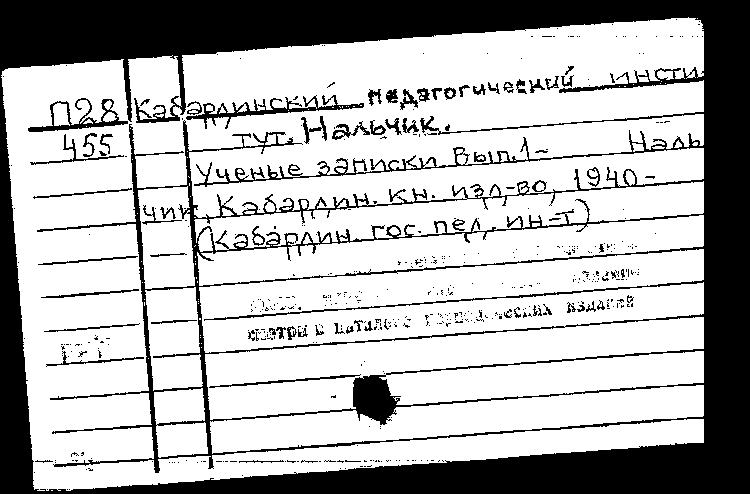 П28 Кабардинский педагогический инсти-
455 тут. Нальчик.
Ученые записки. Вып.1- Наль
чик, Кабардин. кн. изд-во, 1940-
(Кабардин. гос. пед. ин-т)
издание
смотри в каталоге периодических изданий